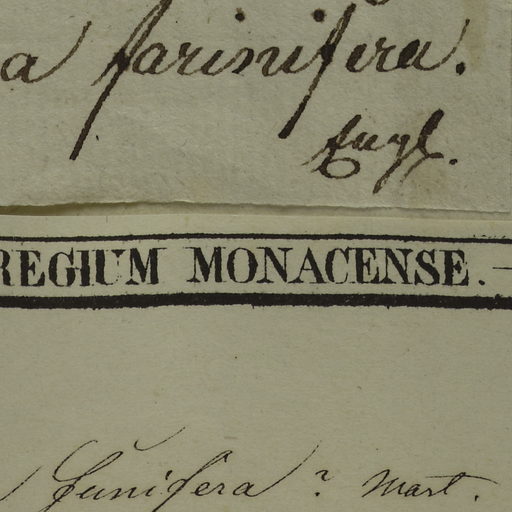 a farinifera.
Engl.
REGIUM MONACENSE.
funifera? Mart.